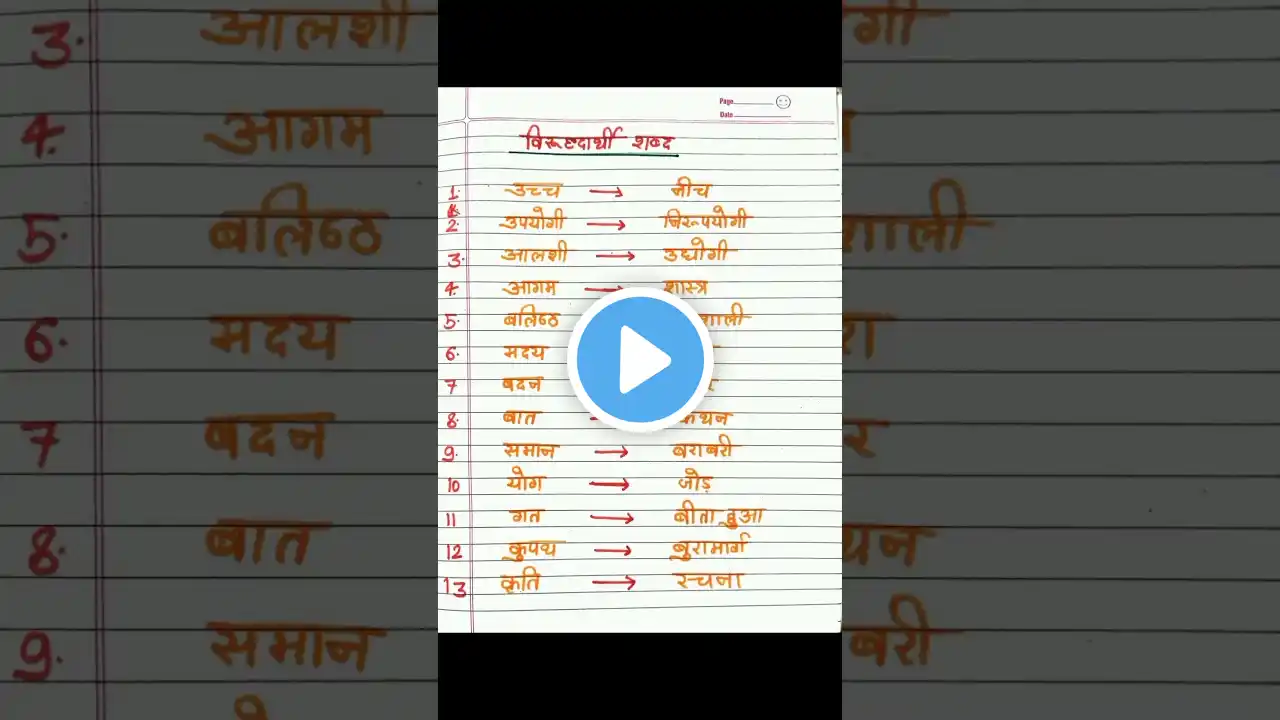 Page
Date
विरूध्दार्थी शब्द
1. उच्च → नीच
2. उपयोगी → निरूपयोगी
3. आलशी → उद्योगी
4. आगम → शास्त्र
5. बलिष्ठ शाली
6. मदय
7 बदन
8. बात कथन
9. समान → बराबरी
10 योग → जोड़
11 गत → बीता हुआ
12 कुपथ → बुरामार्ग
13 कृति → रचना